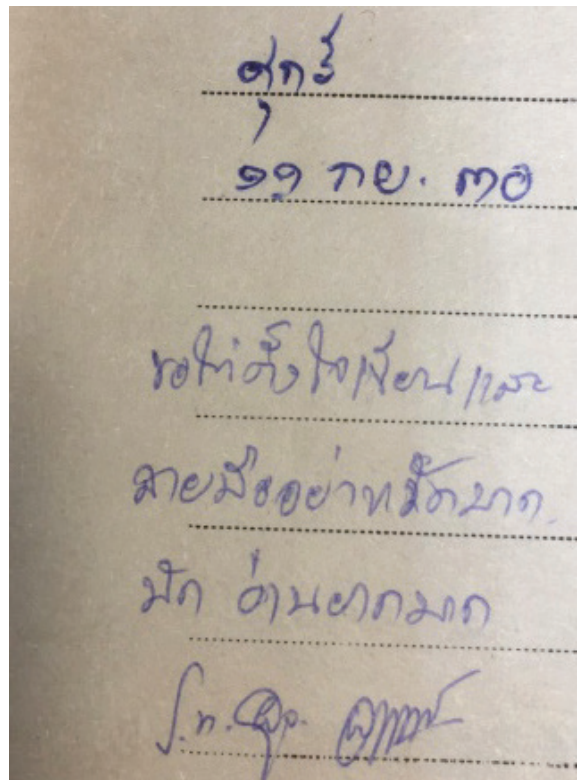 ศุกร์
๑๑ กย. ๓๐
ขอให้ตั้งใจเขียนและ
ลายมืออย่าหวัดมาก
มัก อ่านยากมาก
ร.ท.